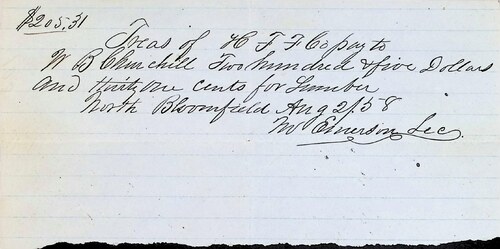 $205,31
Treas of H T F Co pay to
W B Churchill Two hundred & five Dollars
and thirty one cents for Lumber
North Bloomfield Aug 2/58
Emerson Sec